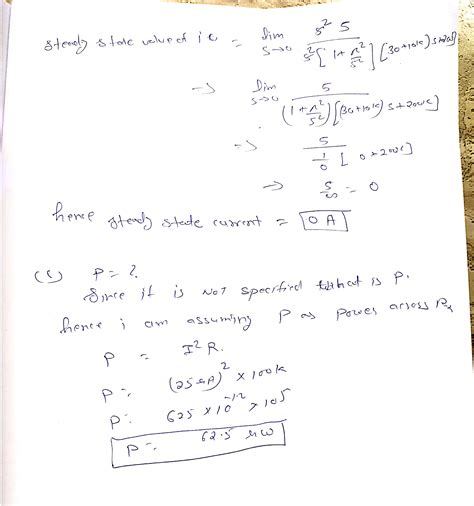 steady state value of ic = lim s→0 s² 5 / s² [1 + n²/s²] [(30+10k) s+200k]
→ lim s→0 5 / (1 + n²/s²) [(30+10k) s + 200k]
→ 5 / 1/0 [0 + 200k]
→ 5/∞ = 0
hence steady state current = 0 A
(c) P = ?
Since it is NOT specified that is P.
hence i am assuming P as power across R
P = I² R.
P = (25 μA)² × 100k
P = 625 × 10⁻¹² × 10⁵
P = 62.5 μW